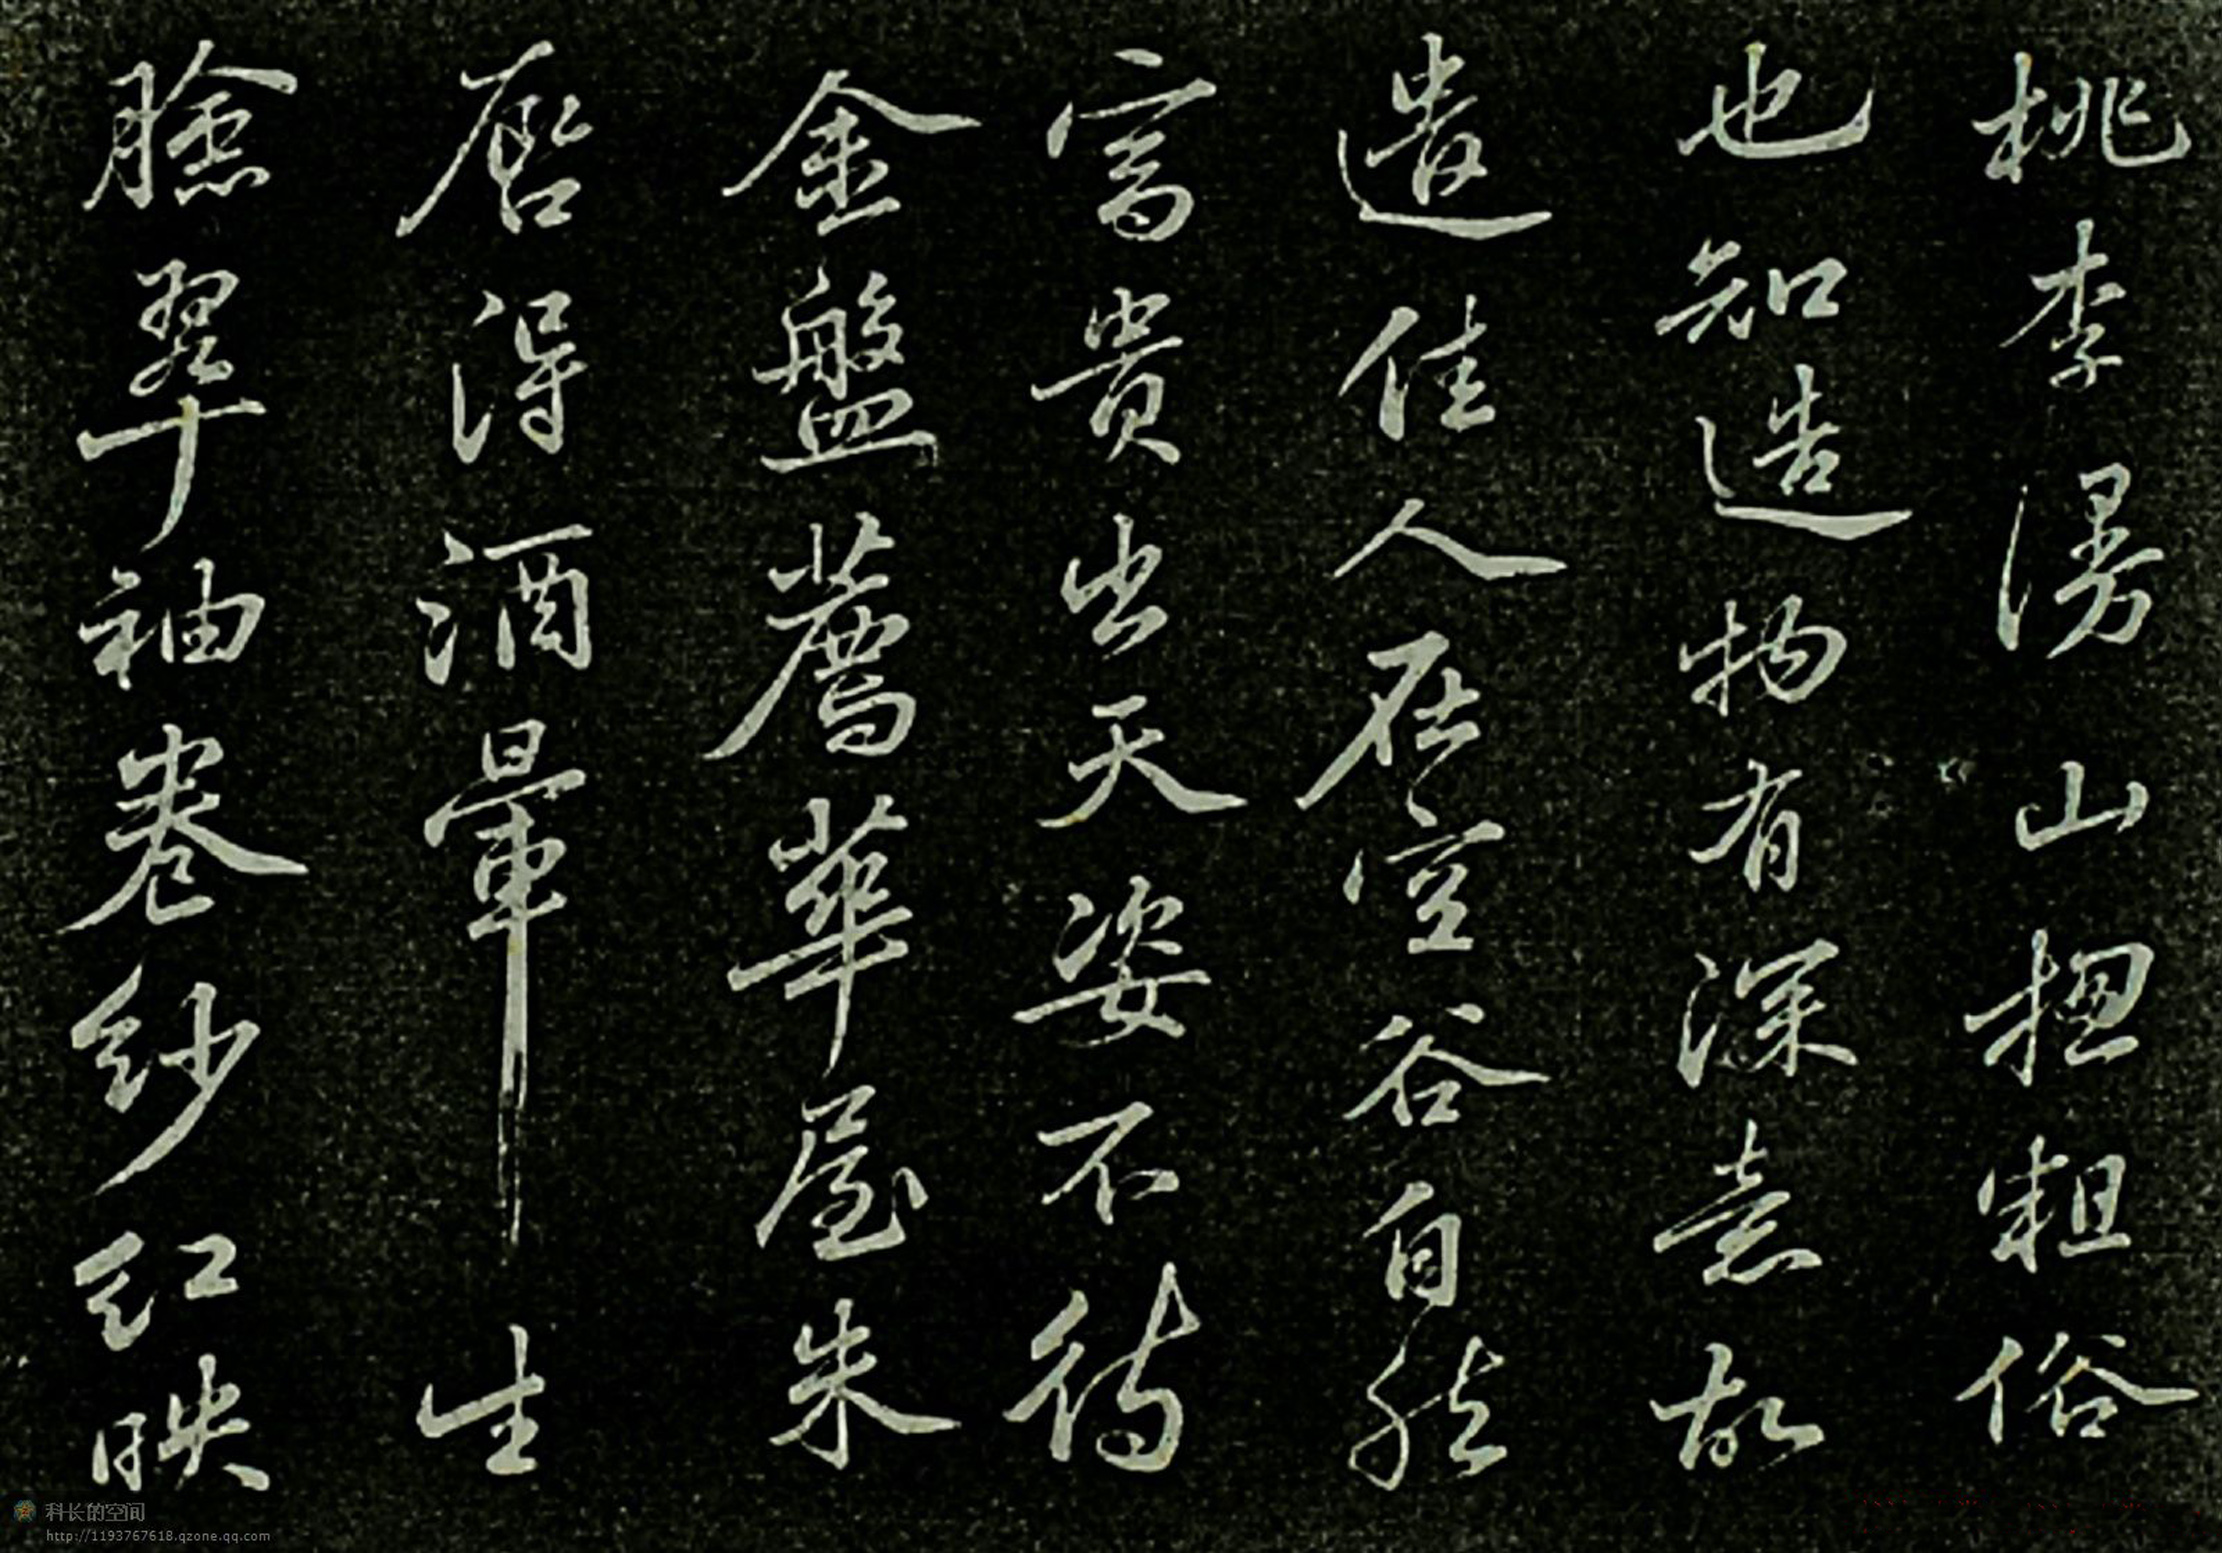 桃李漫山揔粗俗
也知造物有深意故
遣佳人在空谷自然
富貴出天姿不待
金盤薦華屋朱
唇得酒暈生
臉翠袖卷紗紅映
科长的空间
http://1193767618.qzone.qq.com